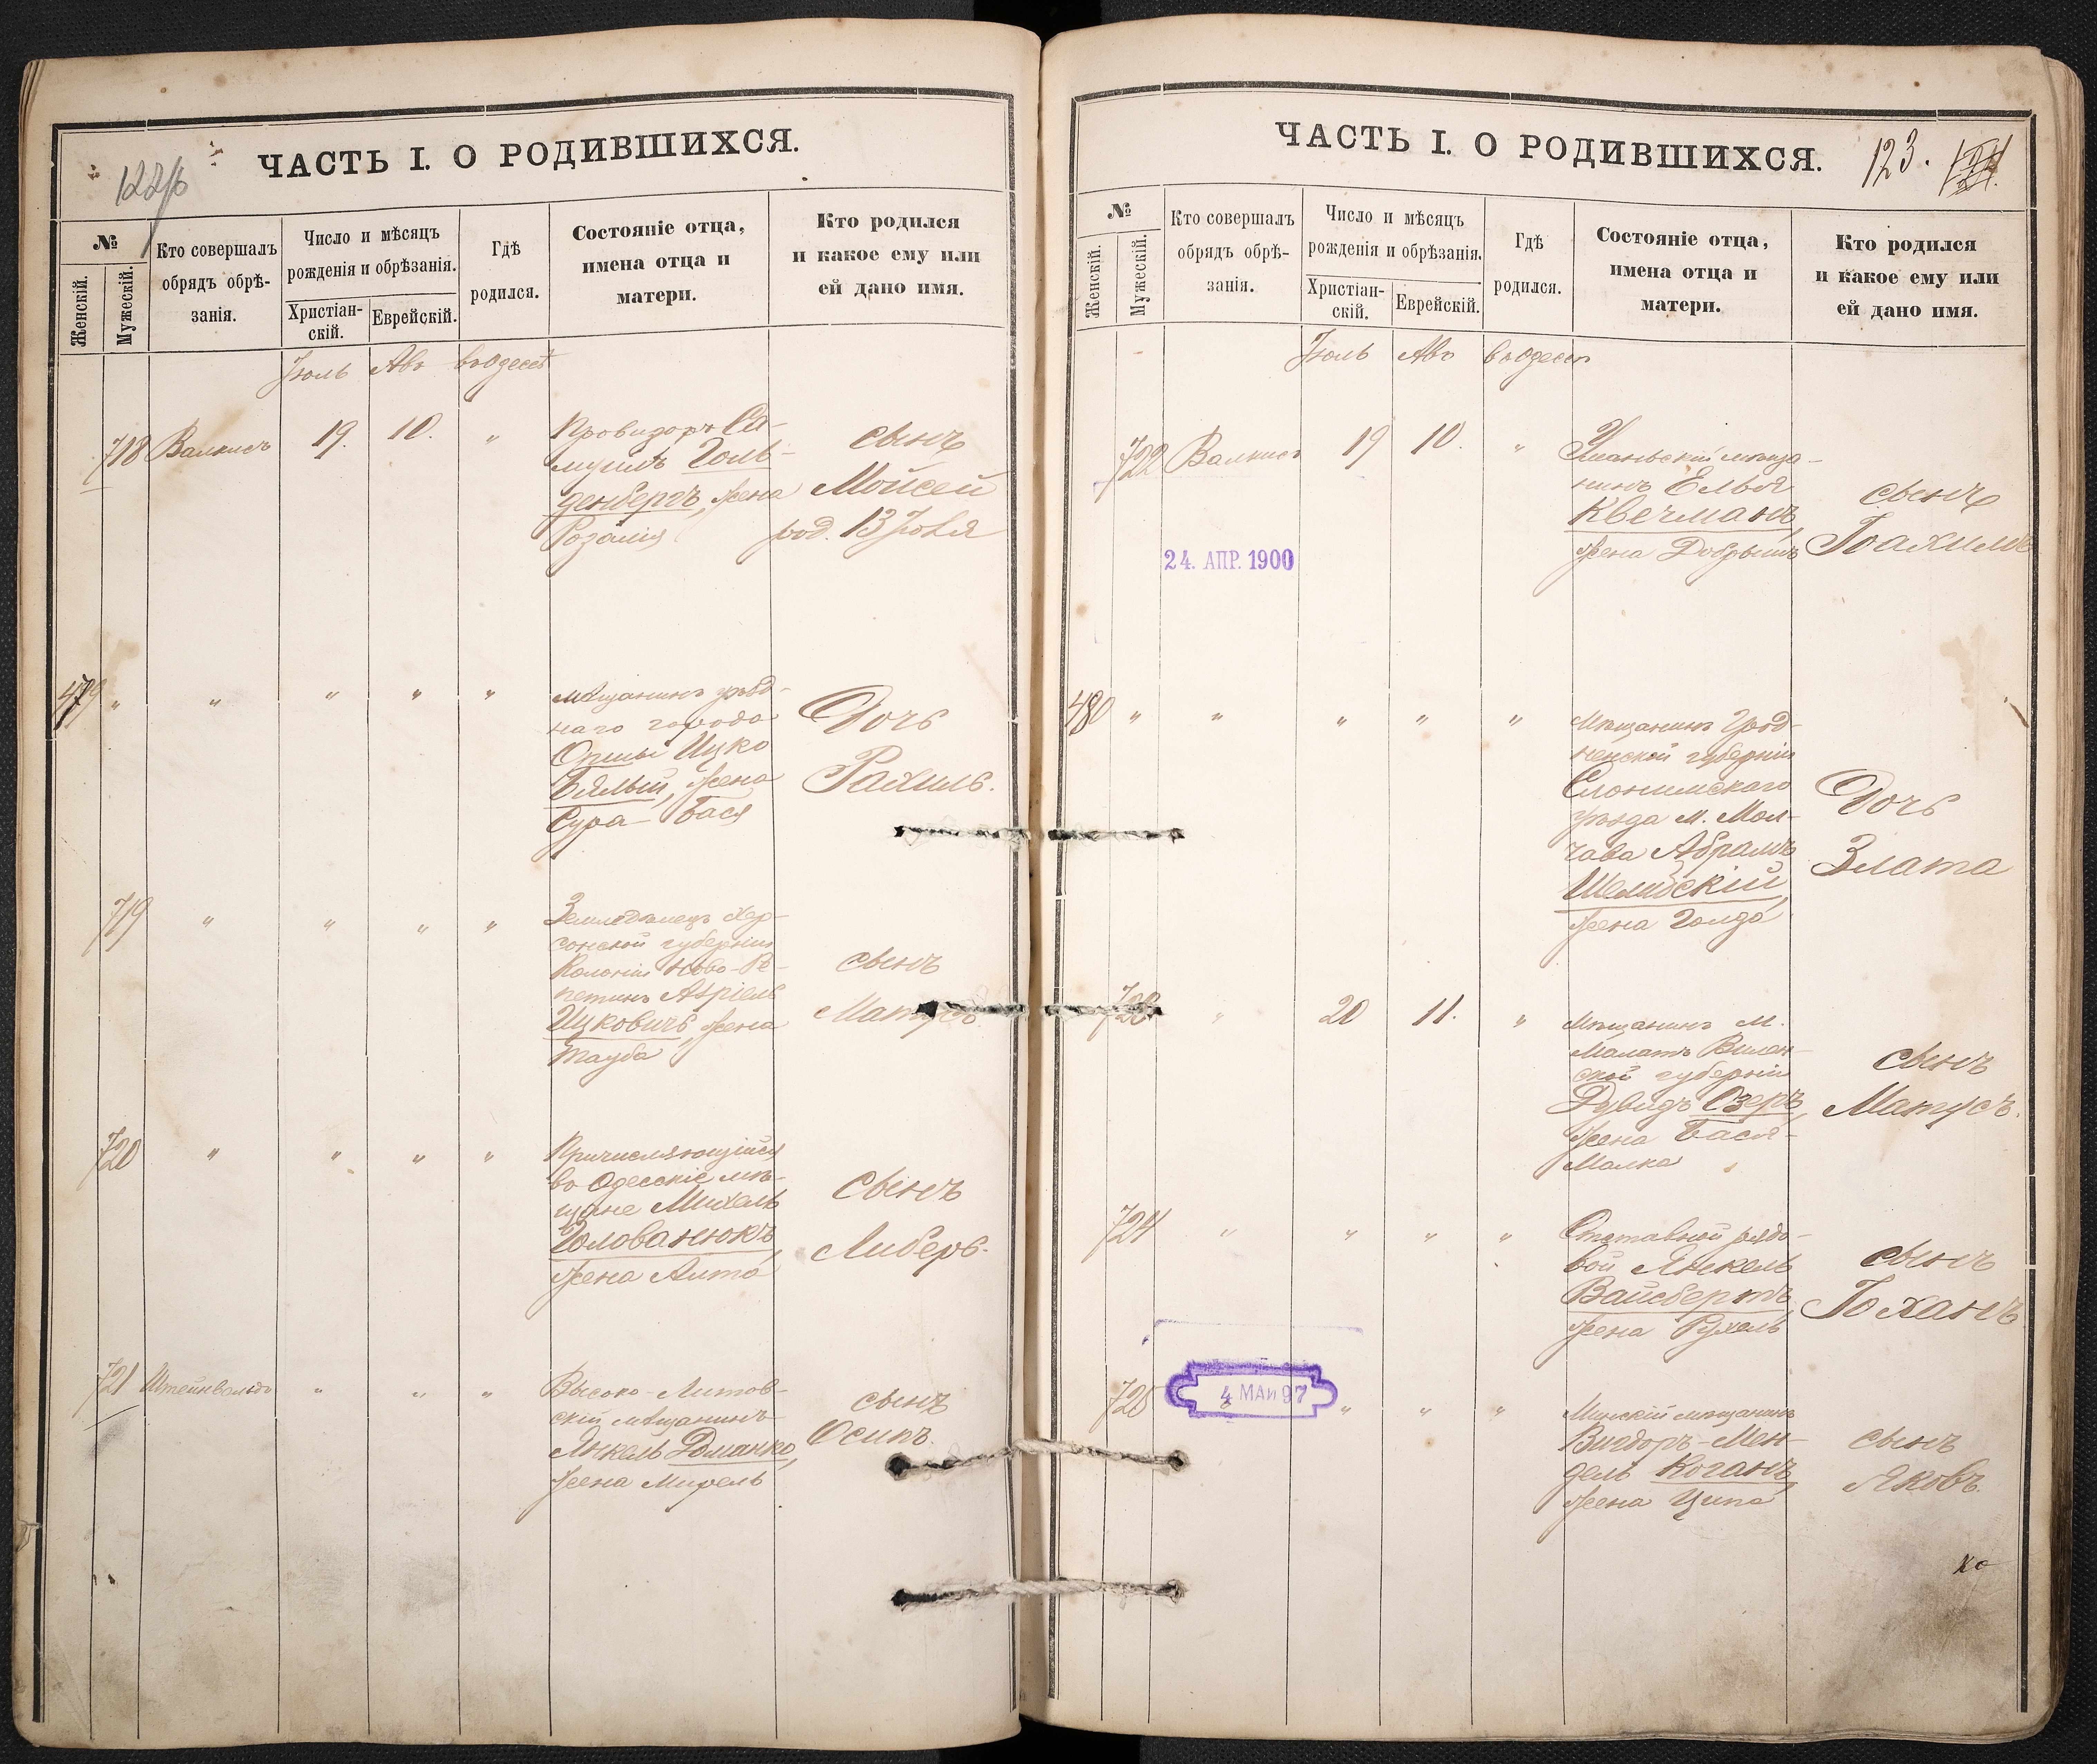 122/б
ЧАСТЬ I. О РОДИВШИХСЯ.
№
Женскій.
Мужескій.
Кто совершалъ
обрядъ обрѣ-
занія.
Число и мѣсяцъ
рожденія и обрѣзанія.
Христіан-
скій.
Еврейскій.
Гдѣ
родился.
Состояніе отца,
имена отца и
матери.
Кто родился
и какое ему или
ей дано имя.
Іюль Авъ въ Одессѣ
718 Валкисъ 19. 10. "
Провизоръ Са-
муилъ Голь-
денбергъ, жена
Розалія
сынъ
Мойсей
род. 13 Іюля
479 " " " " "
Мѣщанинъ уѣзд-
наго города
Орши Ицко
Бялый, жена
Сура-Бася
Дочь
Рахиль.
719 " " " "
Земледѣлецъ Хер-
сонской губерніи
Колоніи Ново-Ве-
Азріель
Ицковичъ, жена
Тауба
сынъ
Матусъ
720 " " " "
Причисляющійся
въ Одесскіе мѣ-
щане Михель
Голованюкъ,
жена Алта
сынъ
Либеръ.
721 Штейнвольдъ " " "
Высоко-Литов-
скій мѣщанинъ
Янкель Доманко,
жена Мирель
сынъ
Осипъ.
ЧАСТЬ I. О РОДИВШИХСЯ.
123.
№
Женскій.
Мужескій.
Кто совершалъ
обрядъ обрѣ-
занія.
Число и мѣсяцъ
рожденія и обрѣзанія.
Христіан-
скій.
Еврейскій.
Гдѣ
родился.
Состояніе отца,
имена отца и
матери.
Кто родился
и какое ему или
ей дано имя.
Іюль Авъ въ Одессѣ
722 Валкисъ 19 10. "
24. АПР. 1900
Уманьскій мѣща-
нинъ Елья
Квечманъ,
жена Добрышъ
сынъ
Іоахимъ
480 " " " " "
Мѣщанинъ Грод-
ненской губерніи
Слонимскаго
уѣзда м. Мол-
чадя Абрамъ
жена Голда
Дочь
Злата
723 " 20 11. "
Мѣщанинъ м.
Малатъ Вилен-
ской губерніи
Дувидъ Озеръ,
жена Бася-
Малка
сынъ
Матусъ.
724 " " " "
Отставной рядо-
вой Янкель
Вайсбертъ,
жена Рухель
сынъ
Іоханъ
725
4 МАИ 97
" " "
Минскій мѣщанинъ
Вигдоръ-Мен-
дель Коганъ,
жена Ципа
сынъ
Яковъ.